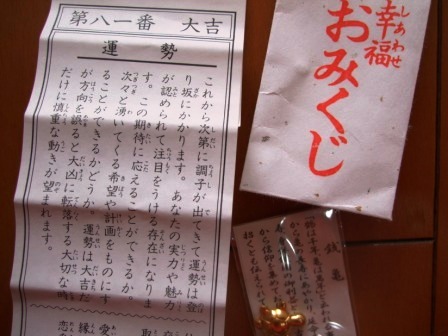 第八一番 大吉
運勢
これから次第に調子が出てきて運勢は登
り坂にかかります。あなたの実力や魅力
が認められて注目をうける存在になりま
す。この期待に応えることができるか。
次々と湧いてくる希望や計画をものにす
ることができるかどうか。運勢は大吉だ
が方向を誤ると大凶に転落する大切な時
だけに慎重な動きが望まれます。
幸福
しあわせ
おみくじ
銭亀